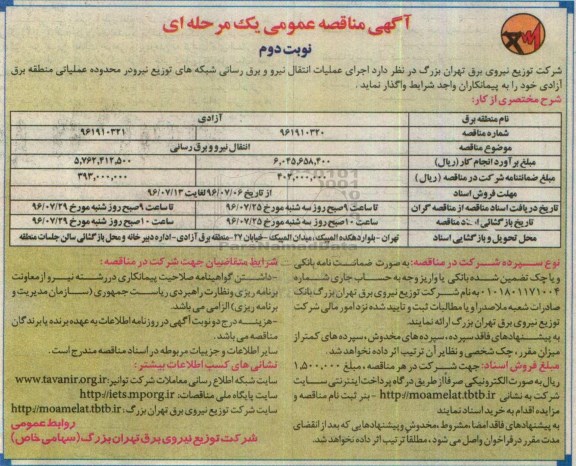 آگهی مناقصه عمومی یک مرحله ای
نوبت دوم
شرکت توزیع نیروی برق تهران بزرگ در نظر دارد اجرای عملیات انتقال نیرو و برق رسانی شبکه های توزیع نیرو در محدوده عملیاتی منطقه برق
آزادی خود را به پیمانکاران واجد شرایط واگذار نماید.
شرح مختصری از کار:
نام منطقه برق آزادی
شماره مناقصه ۹۶۱۹۱۰۳۲۰ ۹۶۱۹۱۰۳۲۱
موضوع مناقصه انتقال نیرو و برق رسانی
مبلغ برآورد انجام کار (ریال) ۶,۰۴۵,۶۵۸,۴۰۰ ۵,۷۶۲,۴۱۲,۵۰۰
مبلغ ضمانتنامه شرکت در مناقصه (ریال) ۴۰۳,۰۰۰,۰۰۰ ۳۹۳,۰۰۰,۰۰۰
مهلت فروش اسناد از تاریخ ۹۶/۰۷/۰۶ لغایت ۹۶/۰۷/۱۳
تاریخ دریافت اسناد مناقصه از مناقصه گران تا ساعت ۹ صبح روز سه شنبه مورخ ۹۶/۰۷/۲۵ تا ساعت ۹ صبح روز شنبه مورخ ۹۶/۰۷/۲۹
تاریخ بازگشائی اسناد مناقصه ساعت ۱۰ صبح روز سه شنبه مورخ ۹۶/۰۷/۲۵ ساعت ۱۰ صبح روز شنبه مورخ ۹۶/۰۷/۲۹
محل تحویل و بازگشایی اسناد تهران - بلوار دهکده المپیک، میدان المپیک - خیابان ۲۷ - منطقه برق آزادی - اداره دبیرخانه و محل بازگشائی سالن جلسات منطقه
نوع سپرده شرکت در مناقصه: به صورت ضمانت نامه بانکی
و یا چک تضمین شده بانکی یا واریز وجه به حساب جاری شماره
۰۱۰۱۸۰۱۱۷۱۰۰۴ به نام شرکت توزیع نیروی برق تهران بزرگ بانک
صادرات شعبه ملاصدرا و یا مطالبات ثبت و تایید شده نزد امور مالی شرکت
توزیع نیروی برق تهران بزرگ ارائه نمایند.
به پیشنهادهای فاقد سپرده، سپرده های مخدوش، سپرده های کمتر از
میزان مقرر، چک شخصی و نظایر آن ترتیب اثر داده نخواهد شد.
مبلغ فروش اسناد: جهت شرکت در هر مناقصه، مبلغ ۱,۵۰۰,۰۰۰
ریال به صورت الکترونیکی صرفاً از طریق درگاه پرداخت اینترنتی سایت
شرکت به نشانی http://moamelat.tbtb.ir - بنر ثبت نام مناقصه و
مزایده اقدام به خرید اسناد نمایند
به پیشنهادهای فاقد امضا، مشروط، مخدوش و پیشنهادهایی که بعد از انقضای
مدت مقرر در فراخوان واصل می شود، مطلقاً ترتیب اثر داده نخواهد شد.
شرایط متقاضیان جهت شرکت در مناقصه:
-داشتن گواهینامه صلاحیت پیمانکاری در رشته نیرو از معاونت
برنامه ریزی ونظارت راهبردی ریاست جمهوری (سازمان مدیریت و
برنامه ریزی) الزامی می باشد.
-هزینه درج دو نوبت آگهی در روزنامه اطلاعات به عهده برنده یا برندگان
مناقصه می باشد.
سایر اطلاعات و جزییات مربوطه در اسناد مناقصه مندرج است.
نشانی های کسب اطلاعات بیشتر:
سایت شبکه اطلاع رسانی معاملات شرکت توانیر: www.tavanir.org.ir
سایت پایگاه ملی مناقصات: http://iets.mporg.ir
سایت شرکت توزیع نیروی برق تهران بزرگ: http://moamelat.tbtb.ir
روابط عمومی
شرکت توزیع نیروی برق تهران بزرگ (سهامی خاص)